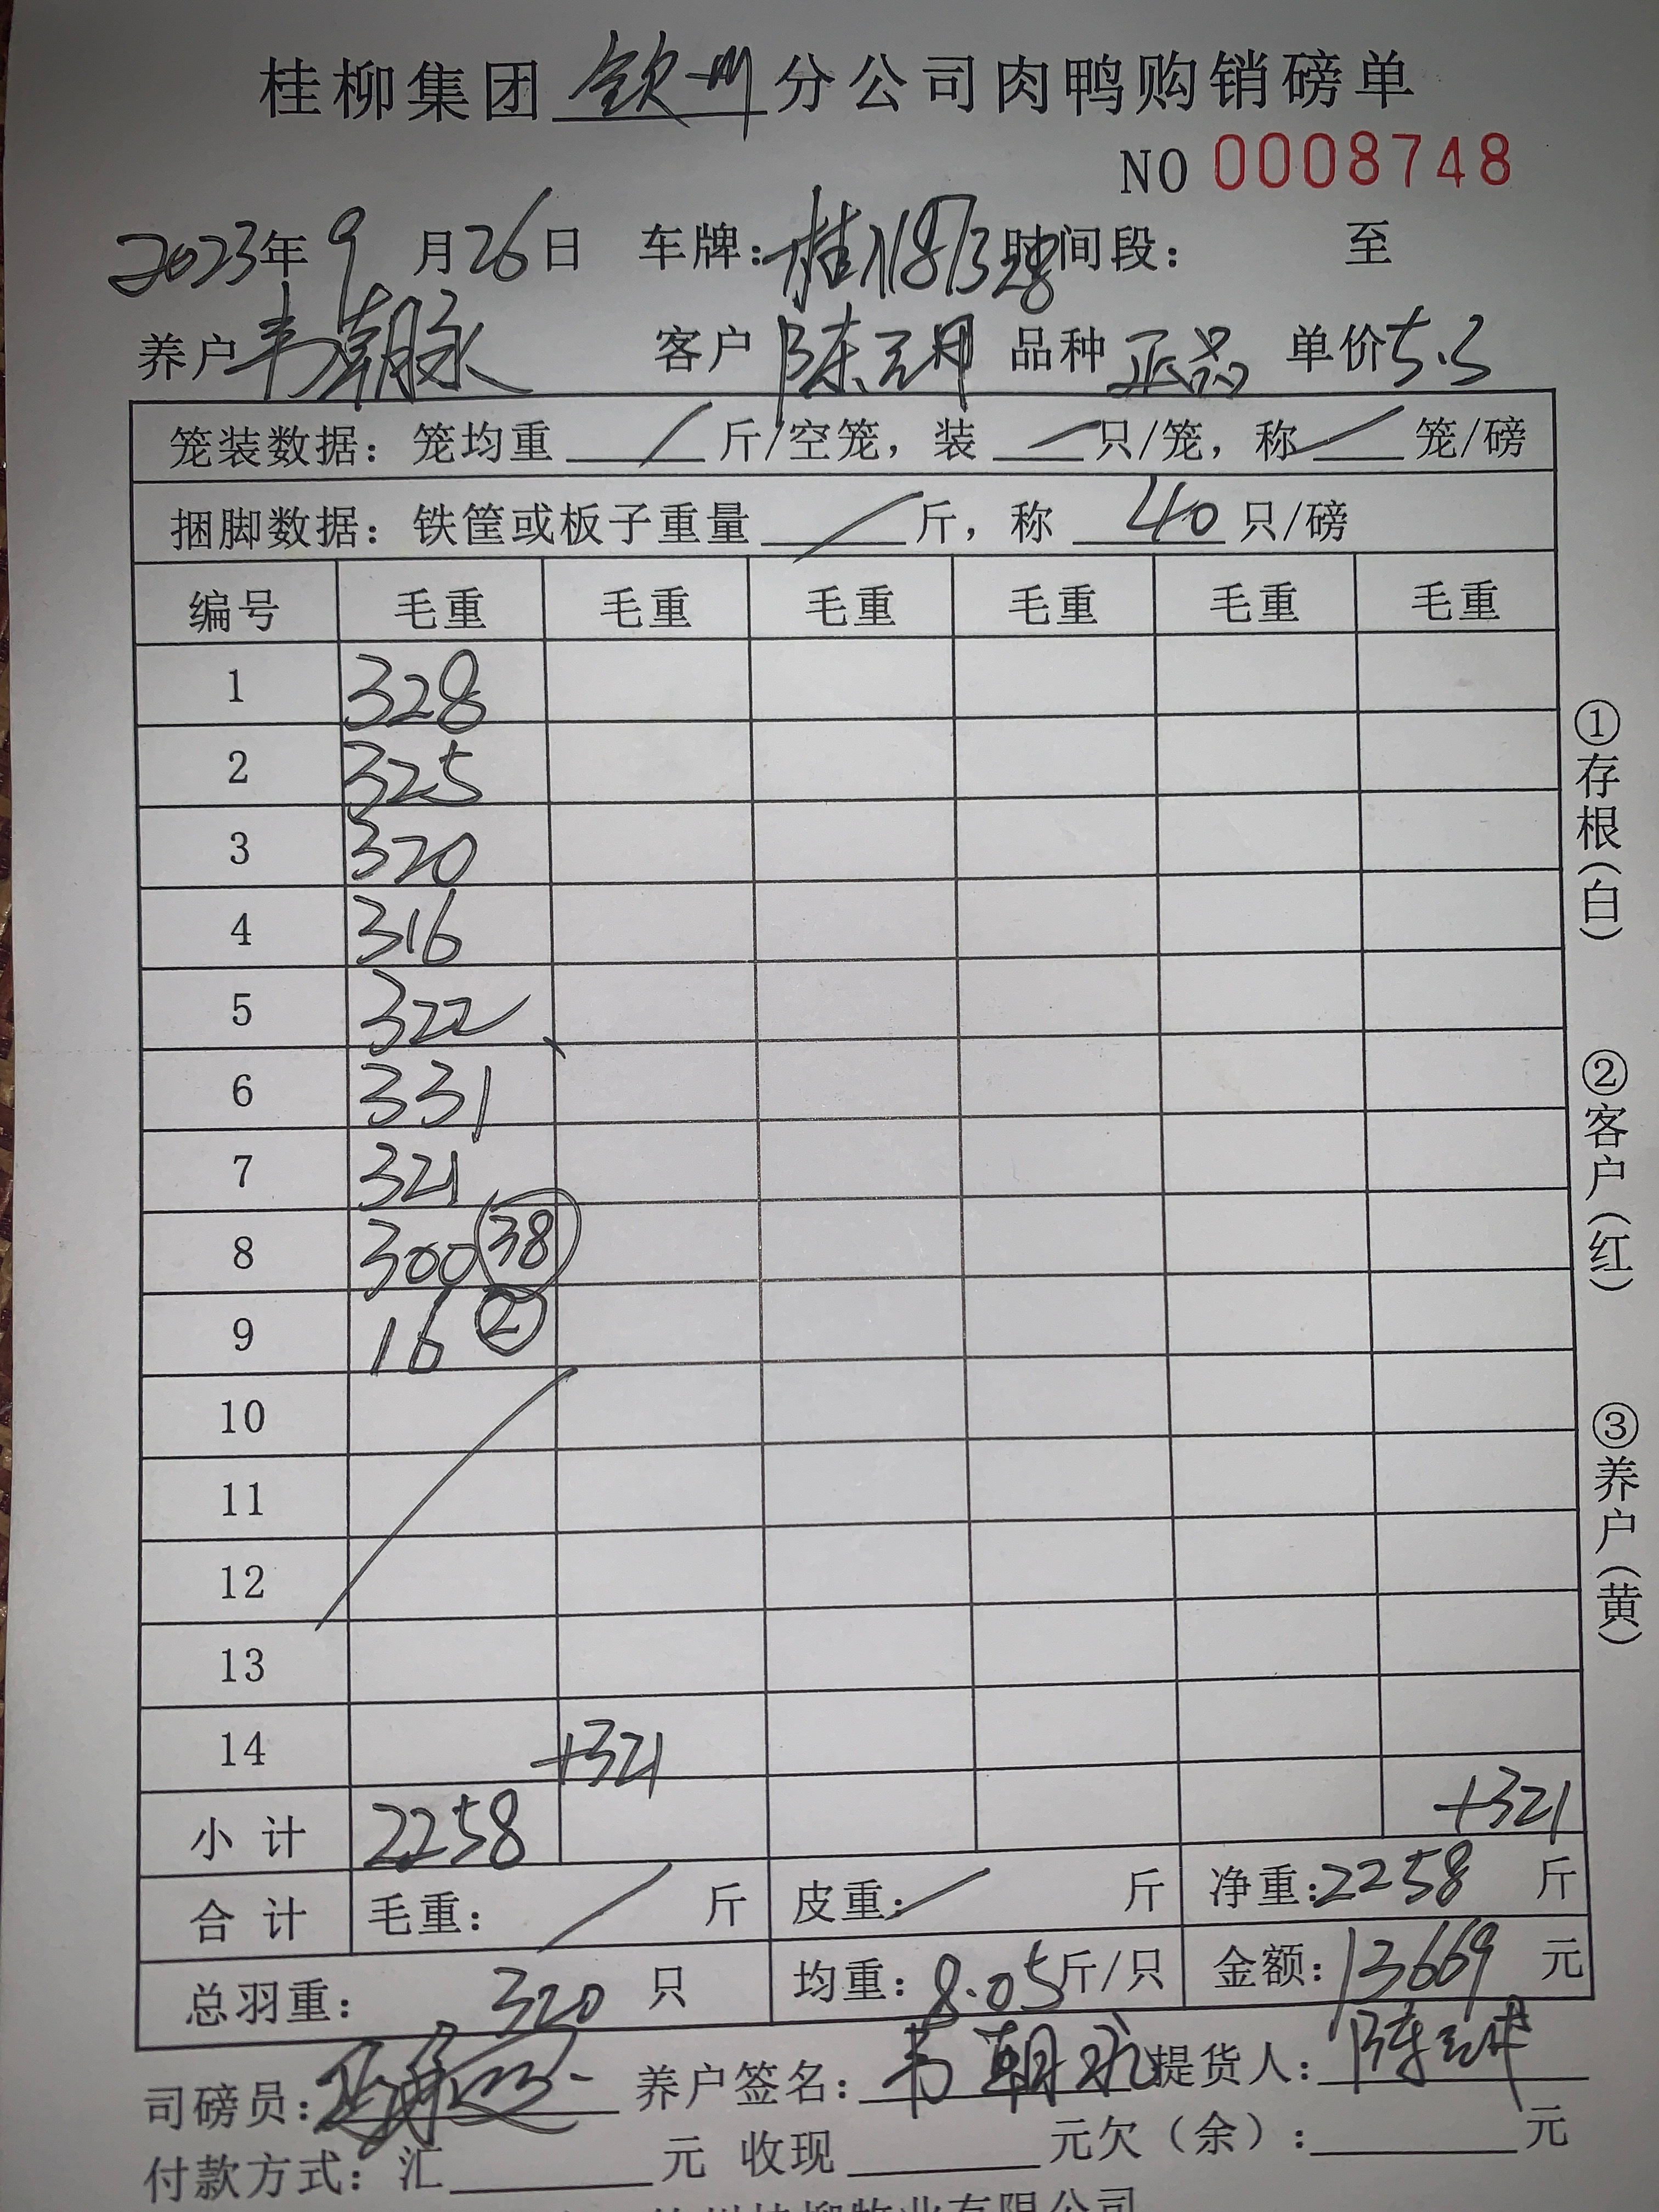 桂柳集团 钦州 分公司肉鸭购销磅单
NO 0008748
2023年 9 月 26 日 车牌: 时间段: 至
养户 韦朝脉 客户 陈 品种 正品 单价 5.3
笼装数据: 笼均重 / 斤/空笼, 装 / 只/笼, 称 / 笼/磅
捆脚数据: 铁筐或板子重量 / 斤, 称 40 只/磅
编号 毛重 毛重 毛重 毛重 毛重 毛重
1 328
2 325
3 320
4 316
5 322
6 331
7 321
8 300 38
9 16 2
10
11
12
13
14 +321
小计 2258 +321
合计 毛重: / 斤 皮重: / 斤 净重: 2258 斤
总羽重: 320 只 均重: 8.05 斤/只 金额: 13669 元
司磅员: 养户签名: 韦朝 提货人: 陈
付款方式: 汇 元 收现 元欠(余): 元
①存根(白)
②客户(红)
③养户(黄)